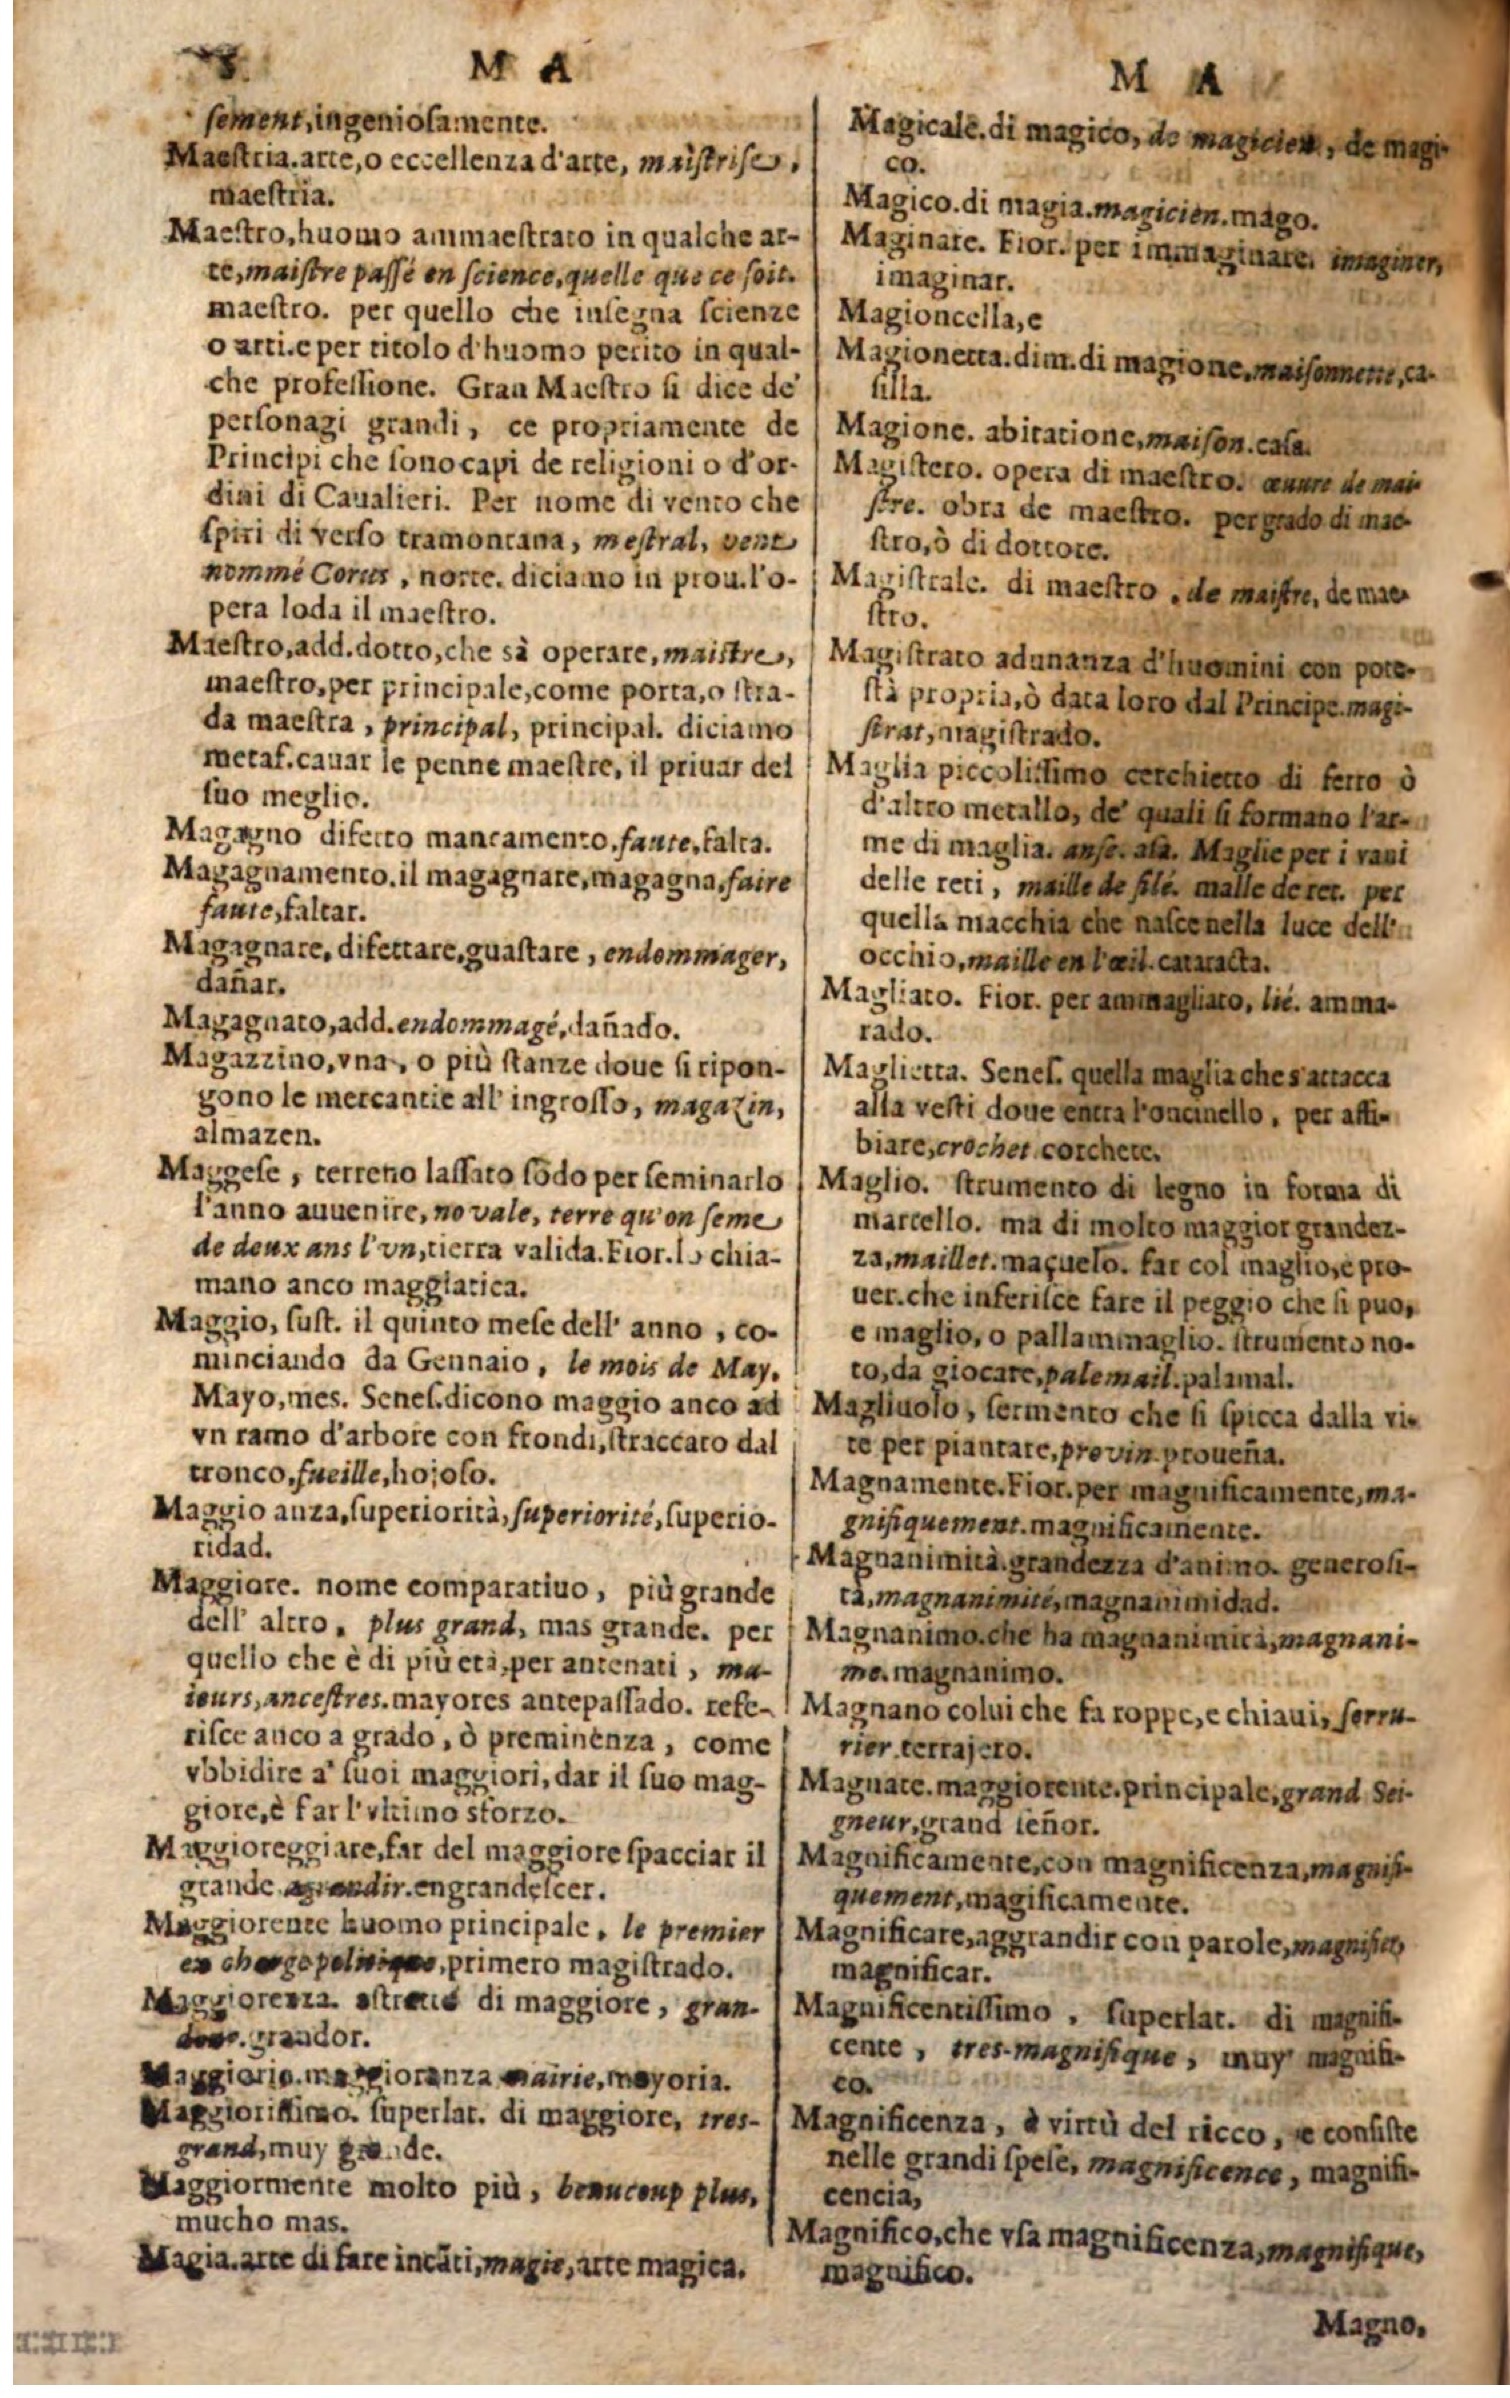 8
M A
ſement, ingenioſamente.
Maeſtria. arte, o eccellenza d'arte, maiſtriſe,
maeſtria.
Maeſtro, huomo ammaeſtrato in qualche ar-
te, maiſtre paſſé en ſcience, quelle que ce ſoit.
maeſtro. per quello che inſegna ſcienze
o arti. e per titolo d'huomo perito in qual-
che profeſſione. Gran Maeſtro ſi dice de'
perſonagi grandi, ce propriamente de
Principi che ſono capi de religioni o d'or-
dini di Caualieri. Per nome di vento che
ſpiri di verſo tramontana, meſtral, vent
nommé Corus, norte. diciamo in prou. l'o-
pera loda il maeſtro.
Maeſtro, add. dotto, che sà operare, maiſtre,
maeſtro, per principale, come porta, o ſtra-
da maeſtra, principal, principal. diciamo
metaf. cauar le penne maeſtre, il priuar del
ſuo meglio.
Magagno difetto mancamento, faute, falta.
Magagnamento. il magagnare, magagna, faire
faute, faltar.
Magagnare, difettare, guaſtare, endommager,
dañar.
Magagnato, add. endommagé, dañado.
Magazzino, vna, o più ſtanze doue ſi ripon-
gono le mercantie all' ingroſſo, magazin,
almazen.
Maggeſe, terreno laſſato ſodo per ſeminarlo
l'anno auuenire, novale, terre qu'on ſeme
de deux ans l'vn, tierra valida. Fior. lo chia-
mano anco maggiatica.
Maggio, ſuſt. il quinto meſe dell' anno, co-
minciando da Gennaio, le mois de May.
Mayo, mes. Seneſ. dicono maggio anco ad
vn ramo d'arbore con frondi, ſtraccato dal
tronco, fueille, hojoſo.
Maggio anza, ſuperiorità, ſuperiorité, ſuperio-
ridad.
Maggiore. nome comparatiuo, più grande
dell' altro, plus grand, mas grande. per
quello che è di più età, per antenati, ma-
ieurs, anceſtres. mayores antepaſſado. refe-
riſce anco a grado, ò preminenza, come
vbbidire a' ſuoi maggiori, dar il ſuo mag-
giore, è far l'vltimo sforzo.
Maggioreggiare, far del maggiore ſpacciar il
grande agrandir. engrandeſcer.
Maggiorente huomo principale, le premier
en charge politique, primero magiſtrado.
Maggiorenza. aſtratto di maggiore, gran-
deur. grandor.
Maggioria. maggioranza mairie, mayoria.
Maggioriſſimo. ſuperlat. di maggiore, tres-
grand, muy grande.
Maggiormente molto più, beaucoup plus,
mucho mas.
Magia. arte di fare incãti, magie, arte magica.
M A
Magicale. di magico, de magicien, de magi-
co.
Magico. di magia. magicien. mago.
Maginare. Fior. per immaginare. imaginer,
imaginar.
Magioncella, e
Magionetta. dim. di magione, maiſonnette, ca-
ſilla.
Magione. abitatione, maiſon. caſa.
Magiſtero. opera di maeſtro. œuure de mai-
ſtre. obra de maeſtro. per grado di mae-
ſtro, ò di dottore.
Magiſtrale. di maeſtro, de maiſtre, de mae-
ſtro.
Magiſtrato adunanza d'huomini con pote-
ſtà propria, ò data loro dal Principe. magi-
ſtrat, magiſtrado.
Maglia piccoliſſimo cerchietto di ferro ò
d'altro metallo, de' quali ſi formano l'ar-
me di maglia. anſe. aſa. Maglie per i vani
delle reti, maille de filé. malle de ret. per
quella macchia che naſce nella luce dell'
occhio, maille en l'œil. cataracta.
Magliato. Fior. per ammagliato, lié. amma-
rado.
Maglietta. Seneſ. quella maglia che s'attacca
alla veſti doue entra l'oncinello, per affi-
biare, crochet corchete.
Maglio. ſtrumento di legno in forma di
martello. ma di molto maggior grandez-
za, maillet. maçuelo. far col maglio, è pro-
uer. che inferiſce fare il peggio che ſi puo,
e maglio, o pallammaglio. ſtrumento no-
to, da giocare, palemail. palamal.
Magliuolo, ſermento che ſi ſpicca dalla vi-
te per piantare, provin. proueña.
Magnamente. Fior. per magnificamente, ma-
gnifiquement. magnificamente.
Magnanimità. grandezza d'animo. generoſi-
tà, magnanimité, magnanimidad.
Magnanimo. che ha magnanimità, magnani-
me. magnanimo.
Magnano colui che fa toppe, e chiaui, ſerru-
rier. terrajero.
Magnate. maggiorente. principale, grand Sei-
gneur, grand ſeñor.
Magnificamente, con magnificenza, magnifi-
quement, magificamente.
Magnificare, aggrandir con parole, magnifier,
magnificar.
Magnificentiſſimo, ſuperlat. di magnifi-
cente, tres-magnifique, muy magnifi-
co.
Magnificenza, è virtù del ricco, e conſiſte
nelle grandi ſpeſe, magnificence, magnifi-
cencia,
Magnifico, che vſa magnificenza, magnifique,
magnifico.
Magno,